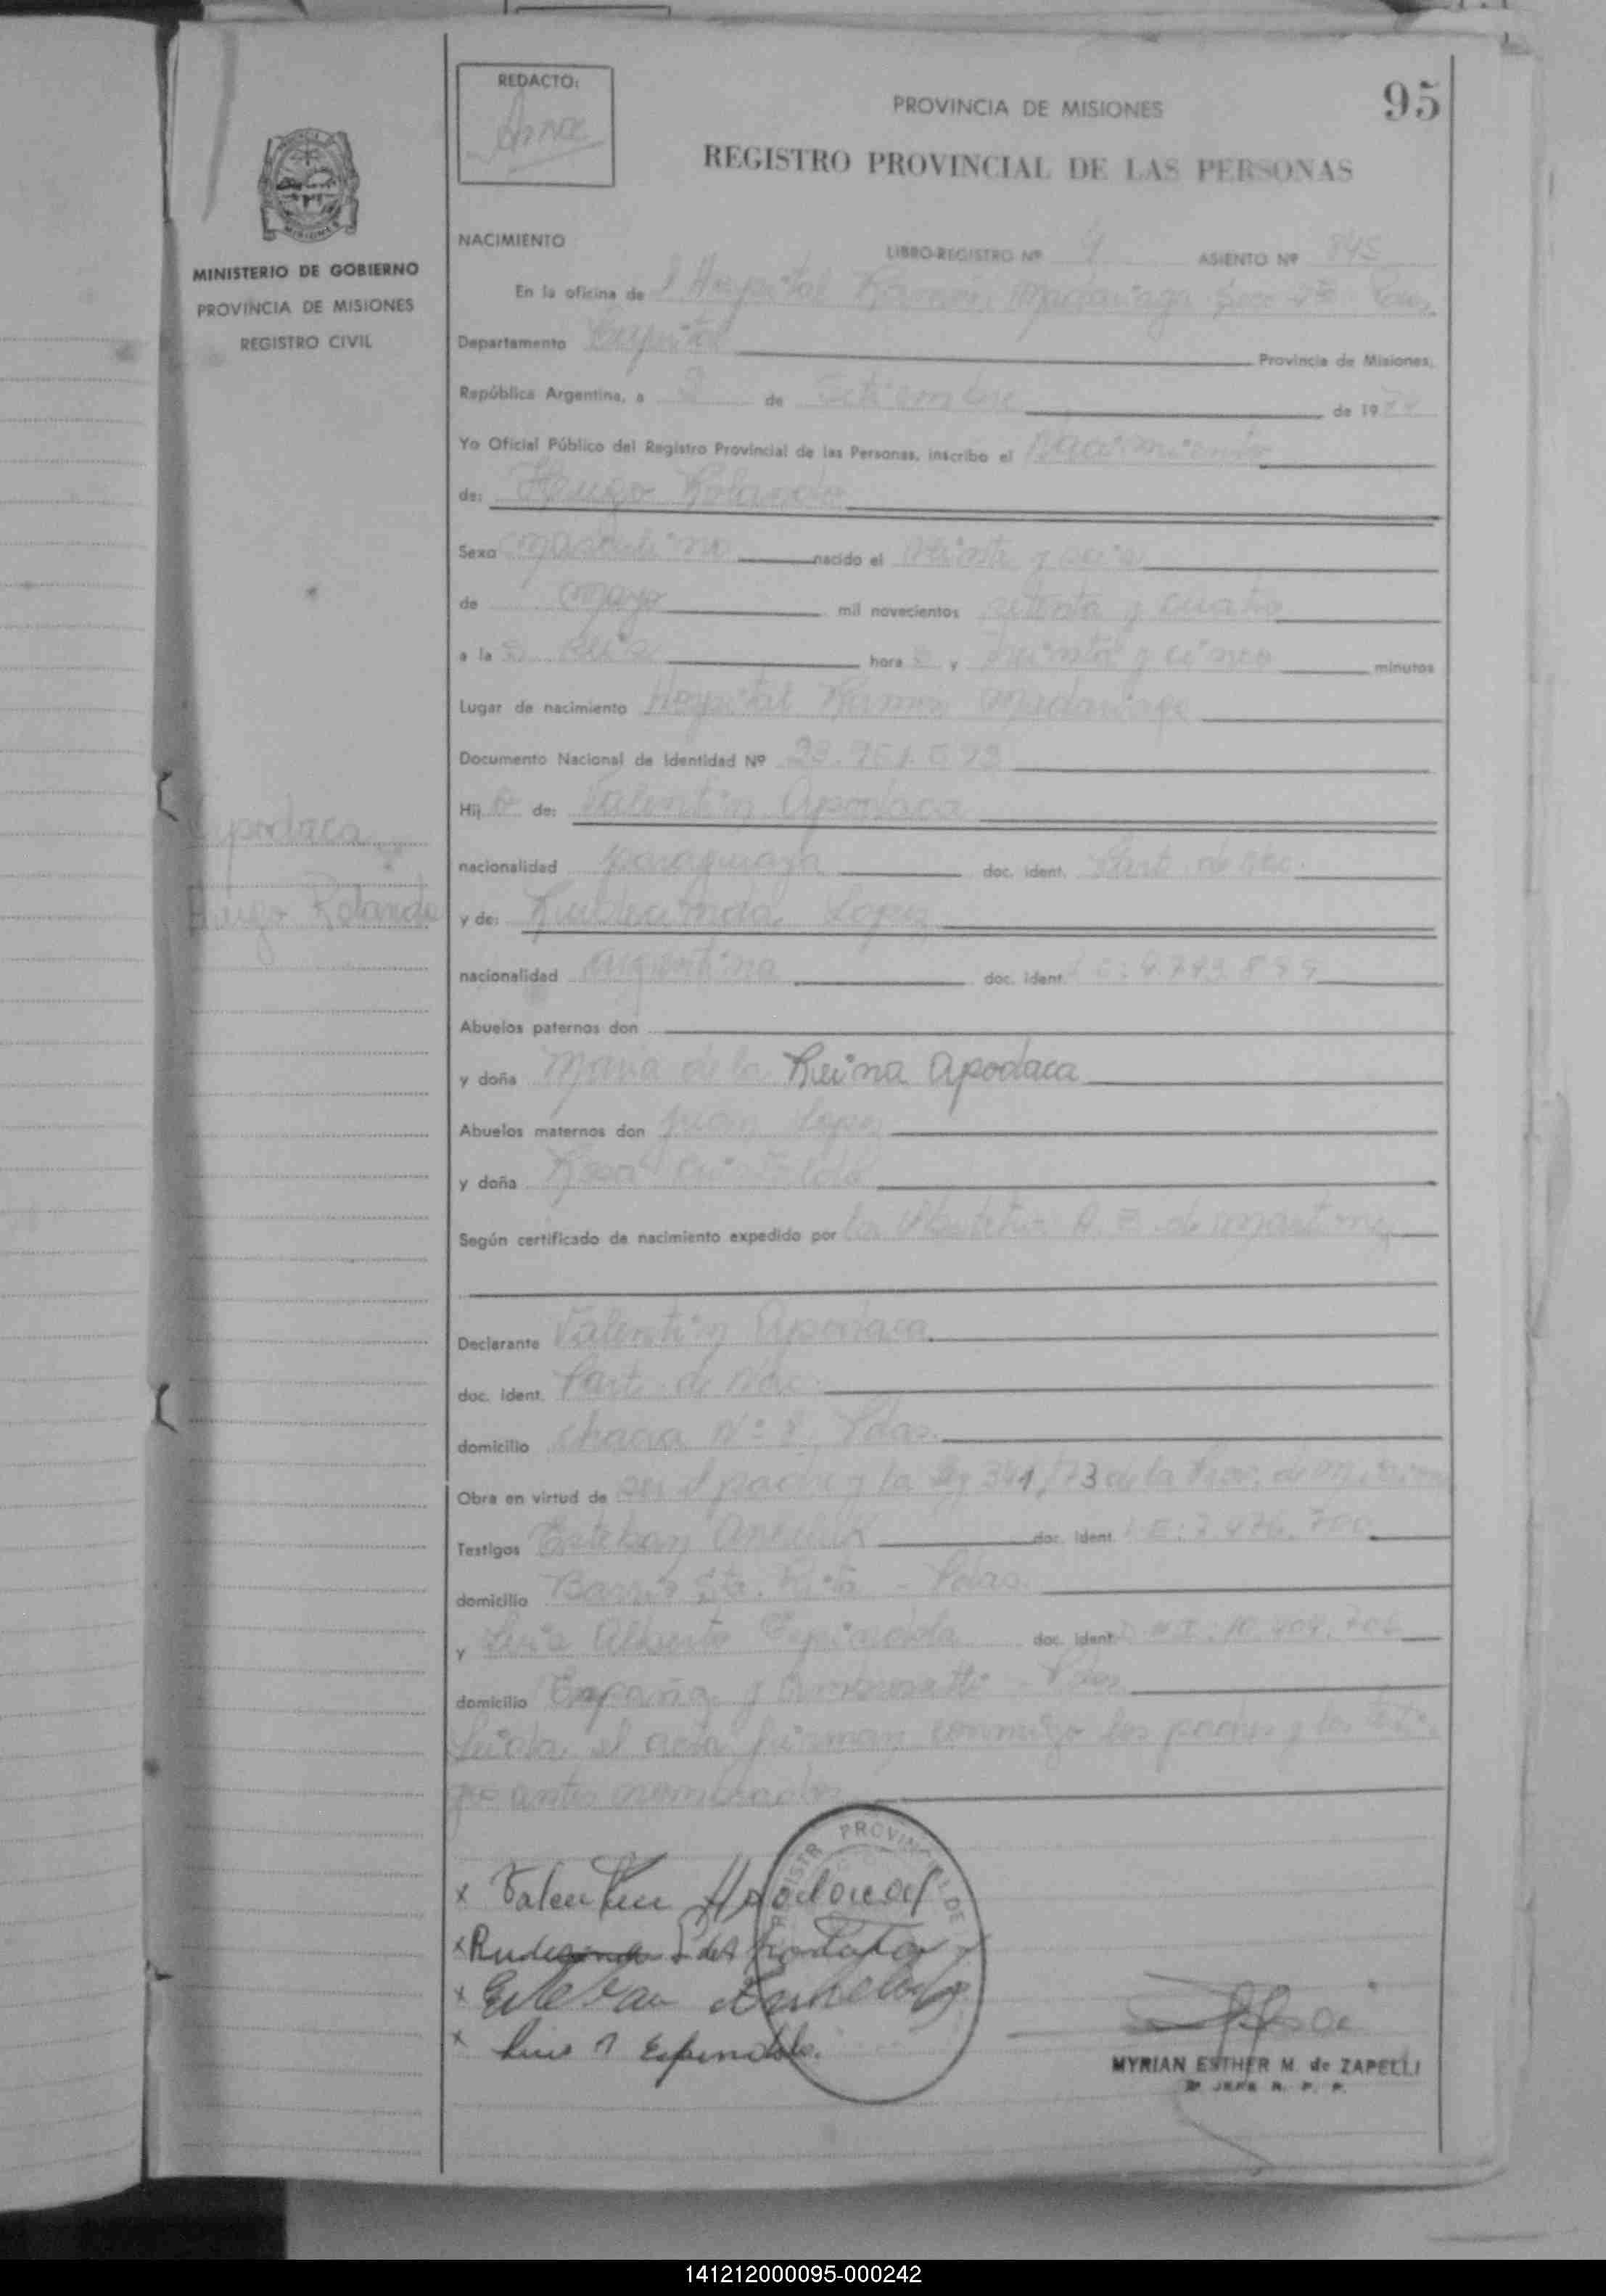 REDACTO:
95
PROVINCIA DE MISIONES
REGISTRO PROVINCIAL DE LAS PERSONAS
MINISTERIO DE GOBIERNO
PROVINCIA DE MISIONES
REGISTRO CIVIL
NACIMIENTO LIBRO-REGISTRO Nº 4 ASIENTO Nº 845
En la oficina de l Hospital Ramón Madariaga
Departamento Capital Provincia de Misiones,
República Argentina, a 2 de Setiembre de 1974
Yo Oficial Público del Registro Provincial de las Personas, inscribo el Nacimiento
de: Hugo Rolando
Sexo masculino nacido el veinte y seis
de mayo mil novecientos setenta y cuatro
a la s seis hora s y treinta y cinco minutos
Lugar de nacimiento Hospital Ramón Madariaga
Documento Nacional de Identidad Nº 23.751.
Hij o de: Valentín Apodaca
Apodaca
Hugo Rolando
nacionalidad paraguaya doc. ident. Part. de Nac.
y de: Lopez
nacionalidad argentina doc. ident.
Abuelos paternos don
y doña Maria de la Reina Apodaca
Abuelos maternos don Juan Lopez
y doña Rosa
Según certificado de nacimiento expedido por la Obstetra A. E. de Martinez
Declarante Valentín Apodaca
doc. ident. Part. de Nac.
domicilio chacra Nº 8 Pdas.
Obra en virtud de ser el padre y la ley 341/73 de la Prov. de Misiones
Testigos Esteban doc. ident. L E: 7.476.700
domicilio Barrio Sta. Rita - Pdas.
y Luis Alberto Espindola doc. ident. D N I: 10.404.706
domicilio España y - Pdas.
Leida el acta firman conmigo los padres y los testi-
gos antes nombrados
x Valentin Apodaca
x
x Esteban
x Luis A Espindola.
REGISTR PROVINCIAL DE
MYRIAN ESTHER M. de ZAPELLI
2º JEFE R. P. P.
141212000095-000242